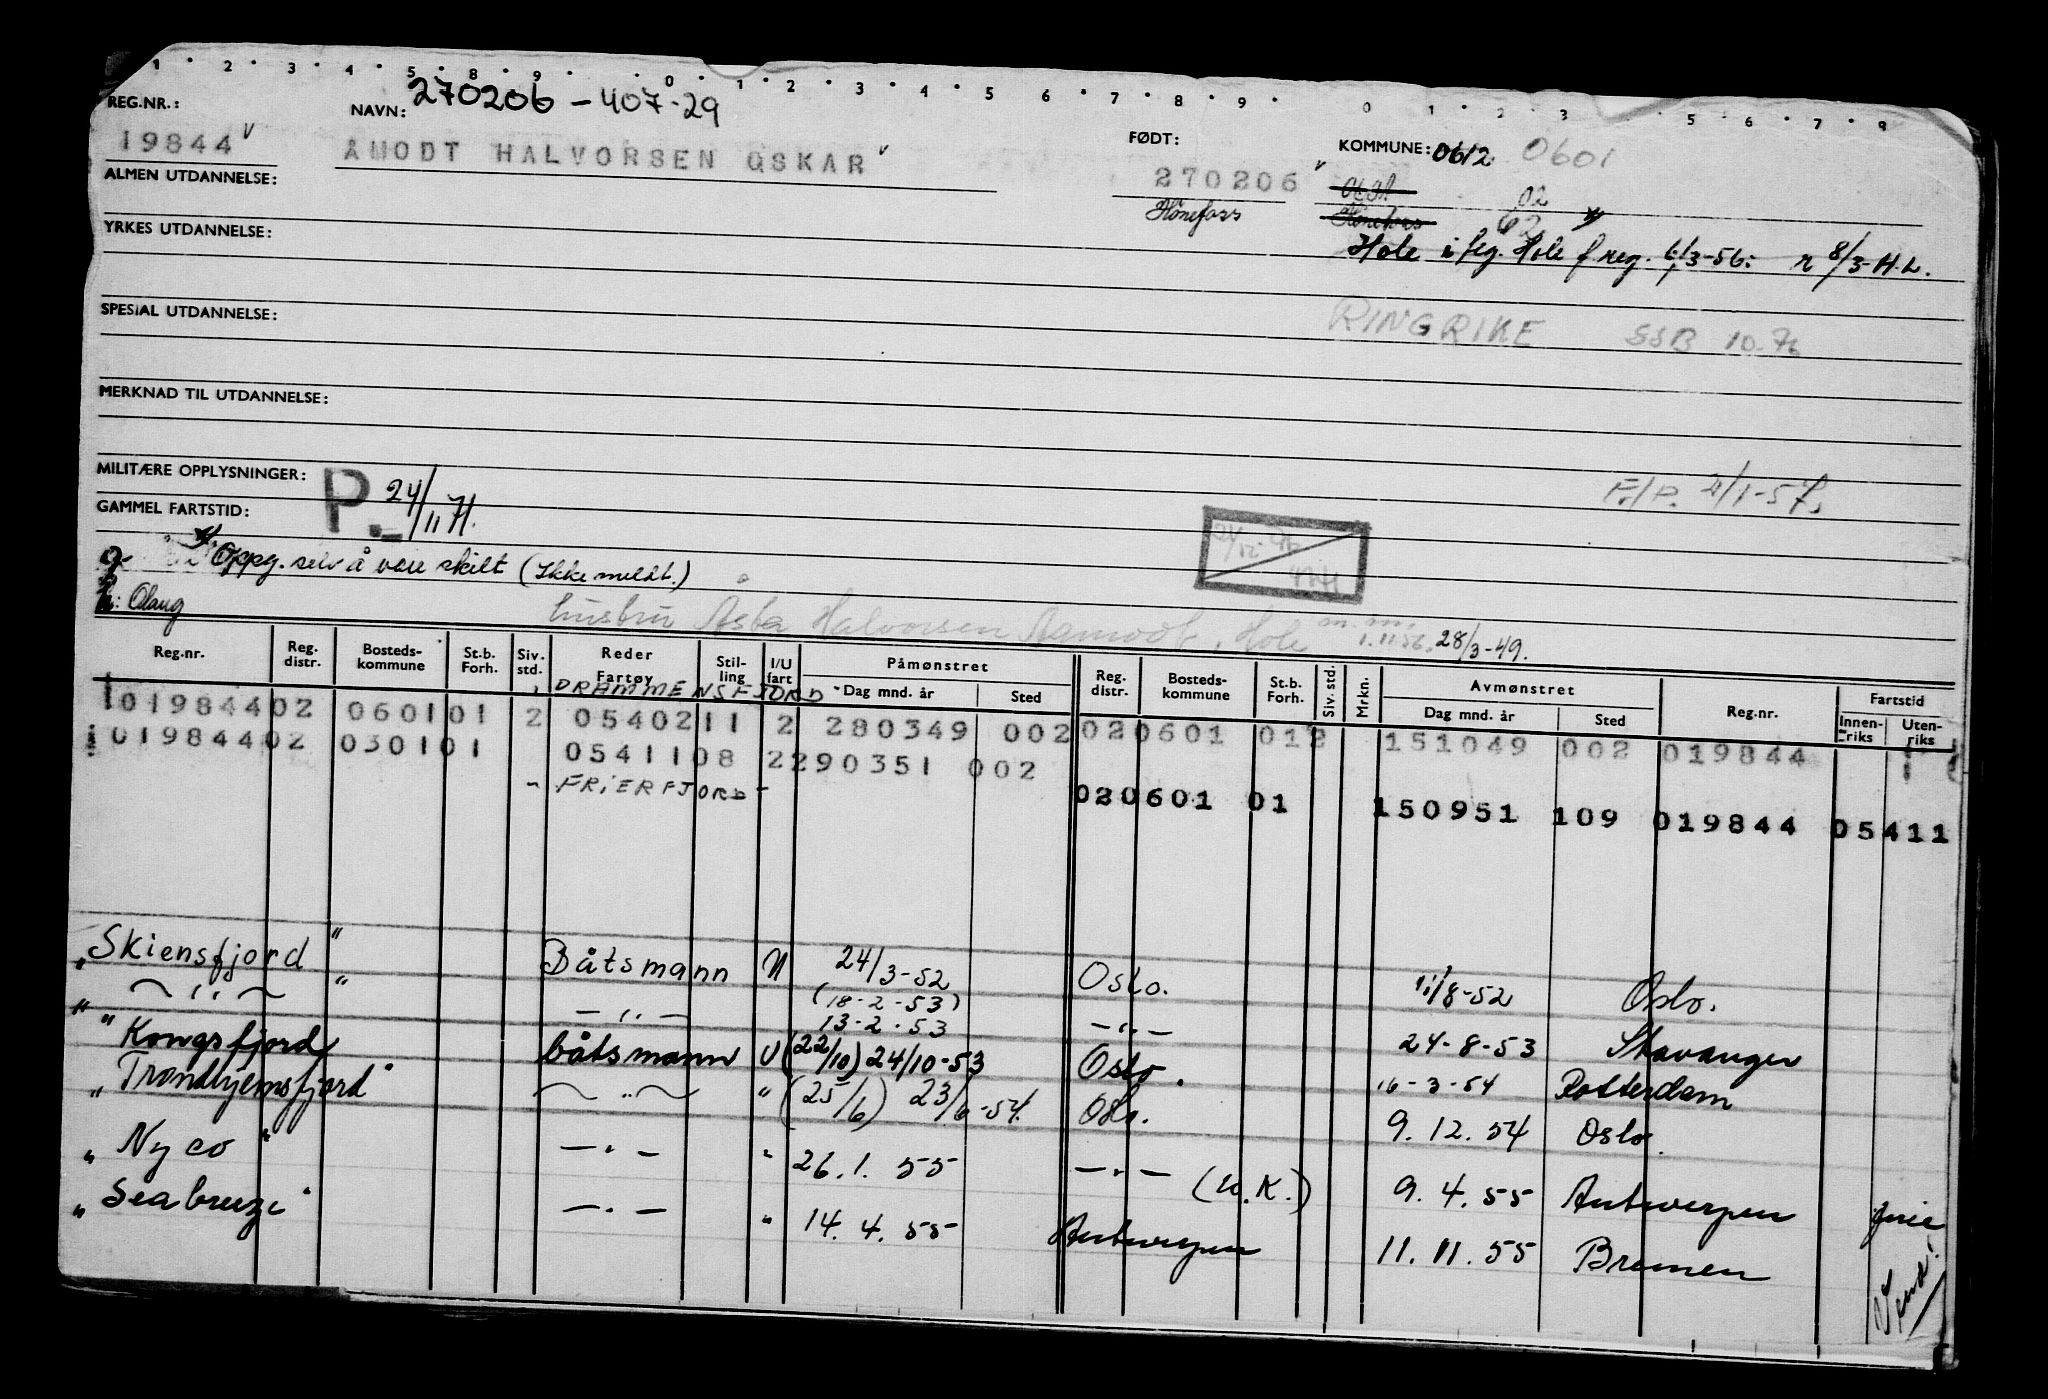 270206-407-29
REG.NR.: NAVN: FØDT: KOMMUNE: 0612 0601
19844 ÅMODT HALVORSEN OSKAR 270206
02
ALMEN UTDANNELSE: Hønefoss Hønefoss
Hole i flg. Hole f.reg. 6/3-56: n 8/3-H.L.
YRKES UTDANNELSE:
SPESIAL UTDANNELSE: RINGRIKE SSB 10.76
MERKNAD TIL UTDANNELSE:
MILITÆRE OPPLYSNINGER: P. 24/11 71. F./P. 4/1-57.
GAMMEL FARTSTID:
Oppg. selv å være skilt (Ikke meldt.)
Olaug
hustru Åsta Halvorsen Aamodt, Hole 1.11.56. 28/3-49.
Reg.nr. Reg. distr. Bosteds-kommune St.b. Forh. Siv. std. Reder Fartøy Stil-ling I/U fart Påmønstret Dag mnd. år Sted Reg. distr. Bosteds-kommune St.b. Forh. Siv. std. Mrkn. Avmønstret Dag mnd. år Sted Reg.nr. Fartstid Innen-riks Uten-riks
DRAMMENSFJORD
019844 02 0601 01 2 05402 11 2 280349 002 02 0601 01 2 151049 002 019844
019844 02 0301 01 05411 08 2 290351 002
- FRIERFJORD - 02 0601 01 150951 109 019844 05411
"Skiensfjord" Båtsmann U 24/3-52 Oslo. 11/8-52 Oslo.
" — " — " — " — (18-2-53) 13-2-53 — " — 24-8-53 Stavanger
"Kongsfjord båtsmann U (22/10) 24/10-53 Oslo. 16-3-54 Rotterdam
"Trondhjemsfjord" — " — " (25/6) 23/6-54. Oslo. 9.12.54 Oslo.
"Nyco" — " — " 26.1.55 — " — (U.K.) 9.4.55 Antwerpen
"Seabreeze" — " — " 14.4.55 Antwerpen 11.11.55 Bremen
Vend!